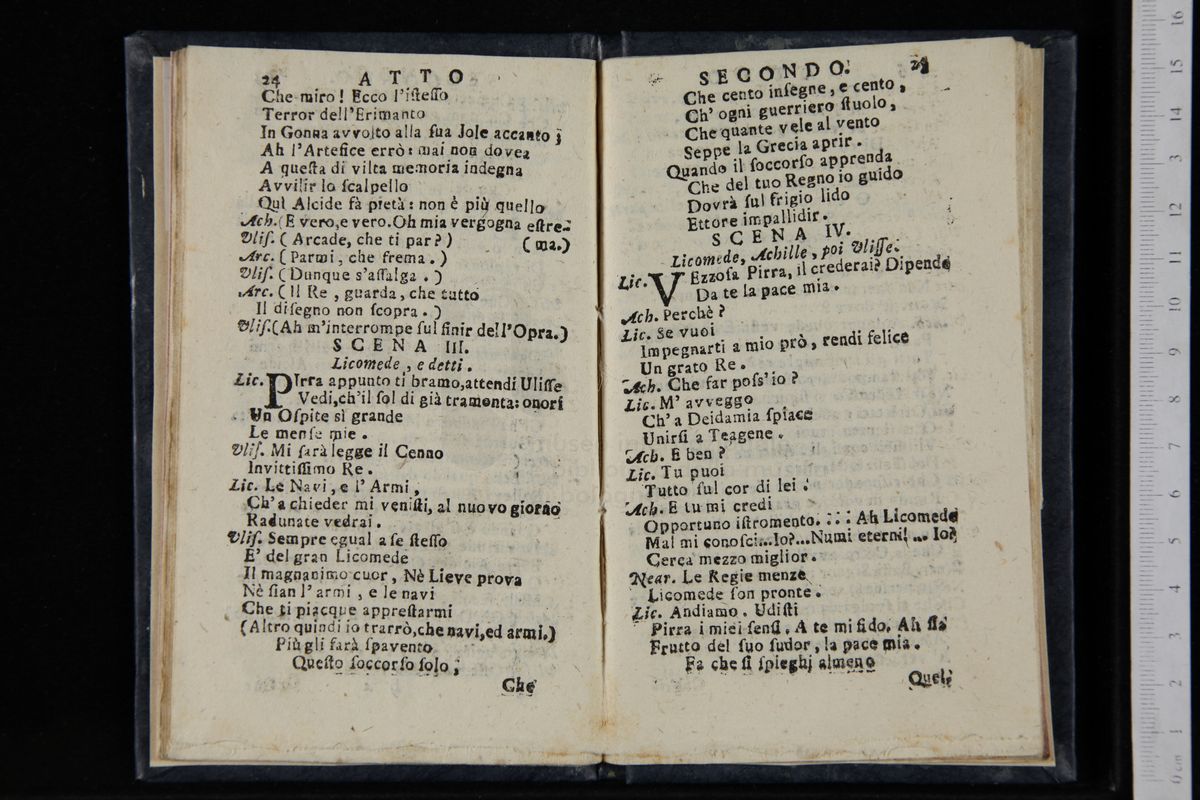 24 ATTO
Che miro! Ecco l'iſteſſo
Terror dell'Erimanto
In Gonna avvolto alla ſua Jole accanto;
Ah l'Artefice errò: mai non dovea
A queſta di vilta memoria indegna
Avvilir lo ſcalpello
Quì Alcide fà pietà: non è più quello
Ach. (E vero, e vero. Oh mia vergogna eſtre-
Vliſ. (Arcade, che ti par?) (ma.)
Arc. (Parmi, che frema.)
Vliſ. (Dunque s'aſſalga.)
Arc. (Il Re, guarda, che tutto
Il diſegno non ſcopra.)
Vliſ. (Ah m'interrompe ſul finir dell'Opra.)
SCENA III.
Licomede, e detti.
Lic. PIrra appunto ti bramo, attendi Uliſſe
Vedi, ch'il ſol di già tramonta: onori
Un Oſpite sì grande
Le menſe mie.
Vliſ. Mi ſarà legge il Cenno
Invittiſſimo Re.
Lic. Le Navi, e l'Armi,
Ch'a chieder mi veniſti, al nuovo giorno
Radunate vedrai.
Vliſ. Sempre egual a ſe ſteſſo
E' del gran Licomede
Il magnanimo cuor, Nè Lieve prova
Nè ſian l'armi, e le navi
Che ti piacque appreſtarmi
(Altro quindi io trarrò, che navi, ed armi.)
Più gli farà ſpavento
Queſto ſoccorſo ſolo,
Che
SECONDO.
Che cento inſegne, e cento,
Ch'ogni guerriero ſtuolo,
Che quante vele al vento
Seppe la Grecia aprir.
Quando il ſoccorſo apprenda
Che del tuo Regno io guido
Dovrà ſul frigio lido
Ettore impallidir.
SCENA IV.
Licomede, Achille, poi Vliſſe.
Lic. VEzzoſa Pirra, il crederai? Dipende
Da te la pace mia.
Ach. Perchè?
Lic. Se vuoi
Impegnarti a mio prò, rendi felice
Un grato Re.
Ach. Che far poſs'io?
Lic. M'avveggo
Ch'a Deidamia ſpiace
Unirſi a Teagene.
Ach. E ben?
Lic. Tu puoi
Tutto ſul cor di lei.
Ach. E tu mi credi
Opportuno iſtromento. ::: Ah Licomede
Mal mi conoſci... Io?... Numi eterni! ... Io?
Cerca mezzo miglior.
Near. Le Regie menze
Licomede ſon pronte.
Lic. Andiamo. Udiſti
Pirra i miei ſenſi. A te mi fido. Ah ſia
Frutto del ſuo ſudor, la pace mia.
Fa che ſi ſpieghi almeno
Quel.